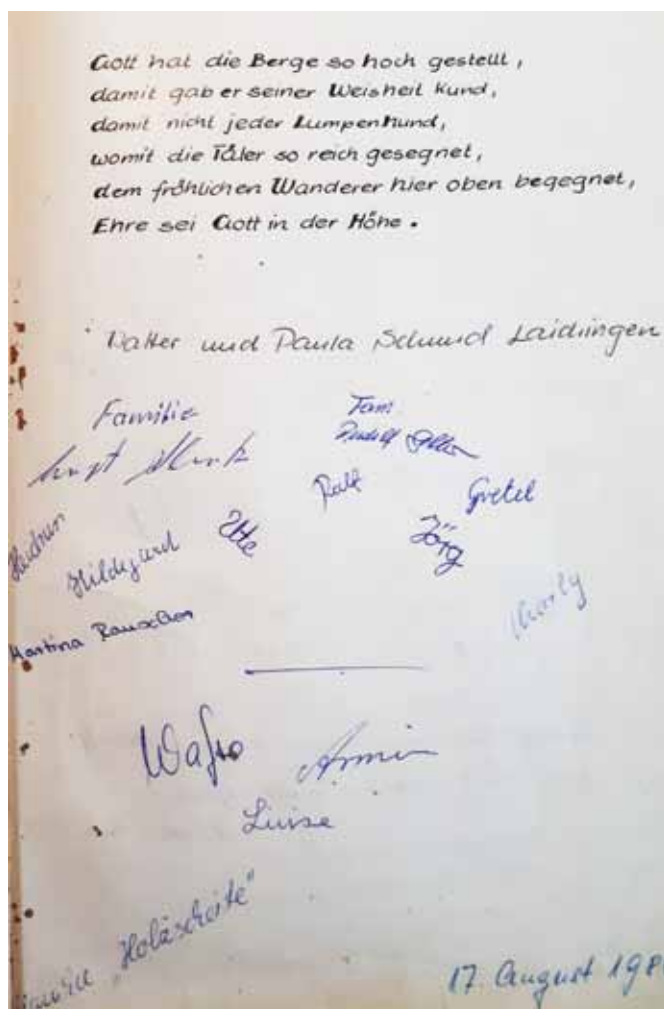 Gott hat die Berge so hoch gestellt,
damit gab er seiner Weisheit Kund,
damit nicht jeder Lumpenhund,
womit die Täler so reich gesegnet,
dem fröhlichen Wanderer hier oben begegnet,
Ehre sei Gott in der Höhe.
Walter und Paula Schmid Laichingen
Familie
Fam.
Rudolf
Ralf
Gretel
Heidrun
Hildegard
Ute
Jörg
Martina Rauscher
Charly
Armin
Luise
"Holäscheite"
17. August 198